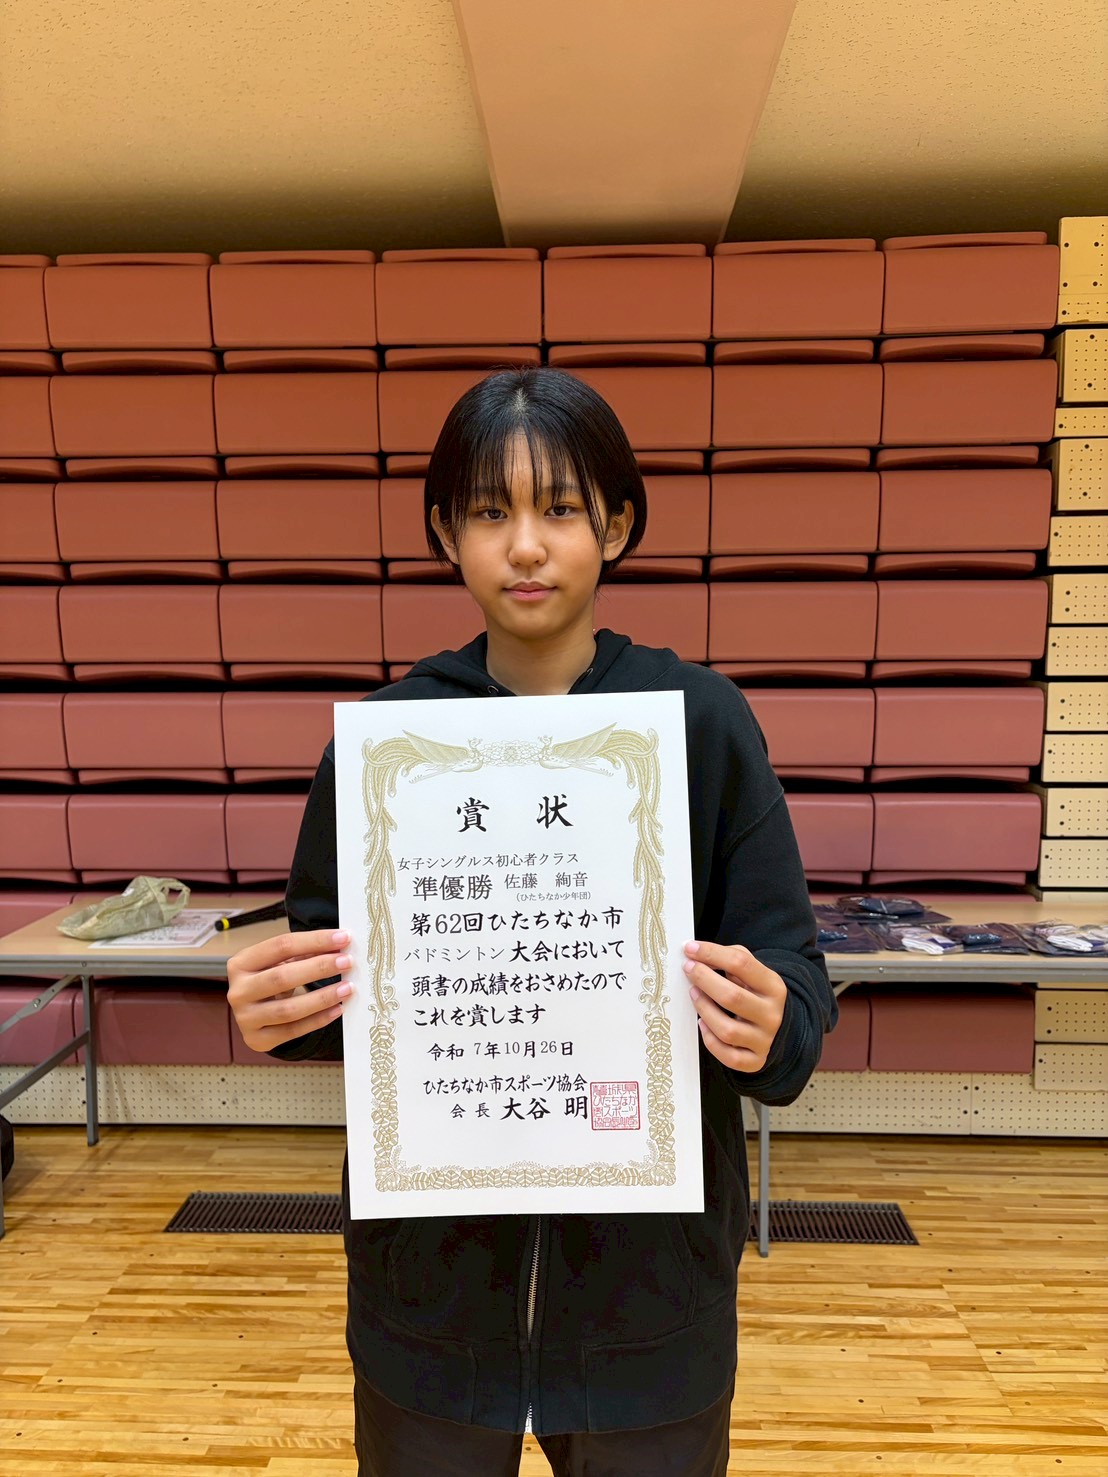 賞状
女子シングルス初心者クラス
準優勝 佐藤 絢音
(ひたちなか少年団)
第62回ひたちなか市
バドミントン大会において
頭書の成績をおさめたので
これを賞します
令和 7年10月26日
ひたちなか市スポーツ協会
会長 大谷 明